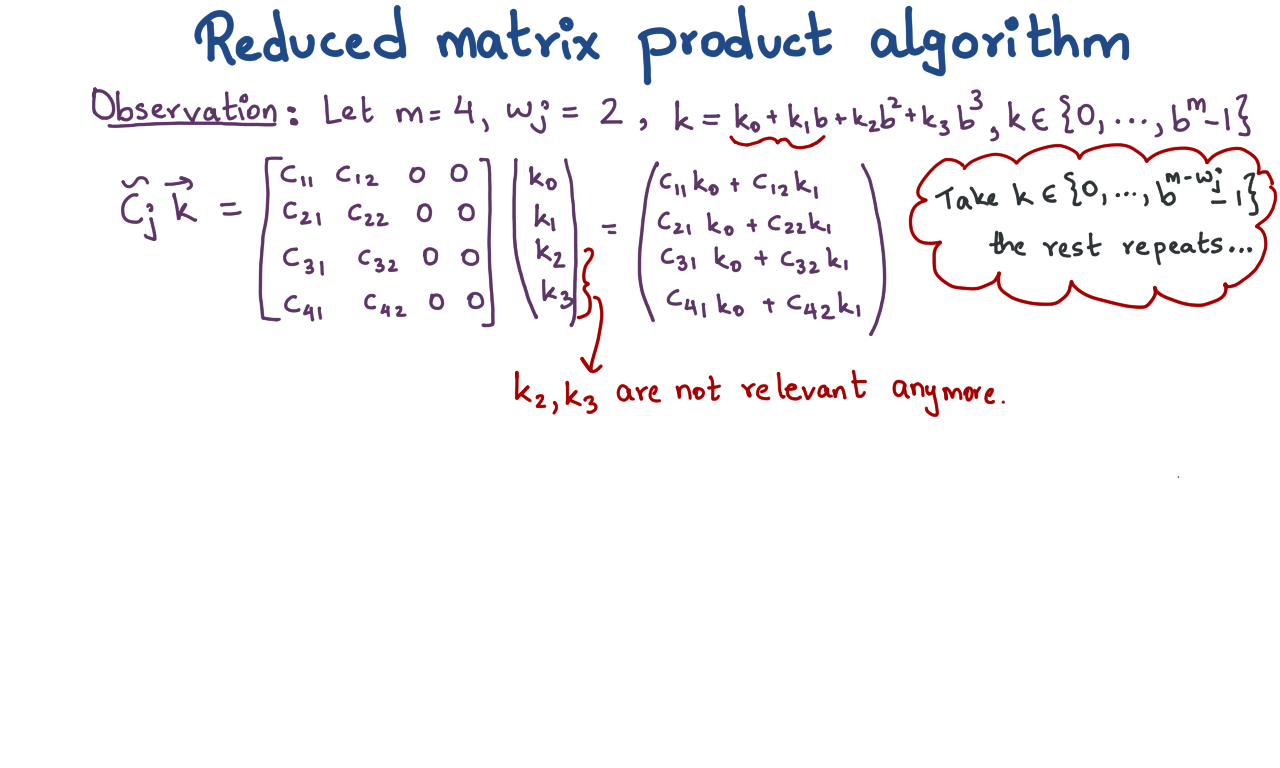 Reduced matrix product algorithm
Observation: Let m=4, wⱼ = 2, k = k₀+k₁b+k₂b²+k₃b³, k ∈ {0, ..., bᵐ-1}
C̃ⱼ k⃗ = [c₁₁ c₁₂ 0 0] (k₀) = (c₁₁k₀ + c₁₂k₁)
c₂₁ c₂₂ 0 0 k₁ c₂₁ k₀ + c₂₂k₁
c₃₁ c₃₂ 0 0 k₂ c₃₁ k₀ + c₃₂k₁
c₄₁ c₄₂ 0 0 k₃ c₄₁ k₀ + c₄₂k₁
Take k ∈ {0, ..., b^{m-wⱼ}-1}
the rest repeats...
k₂, k₃ are not relevant anymore.